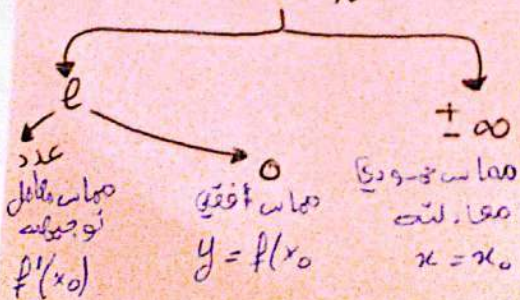 l
± ∞
عدد
مماس معامل
توجيهه
f'(x₀)
0
مماس أفقي
y = f(x₀
مماس عمودي
معادلته
x = x₀